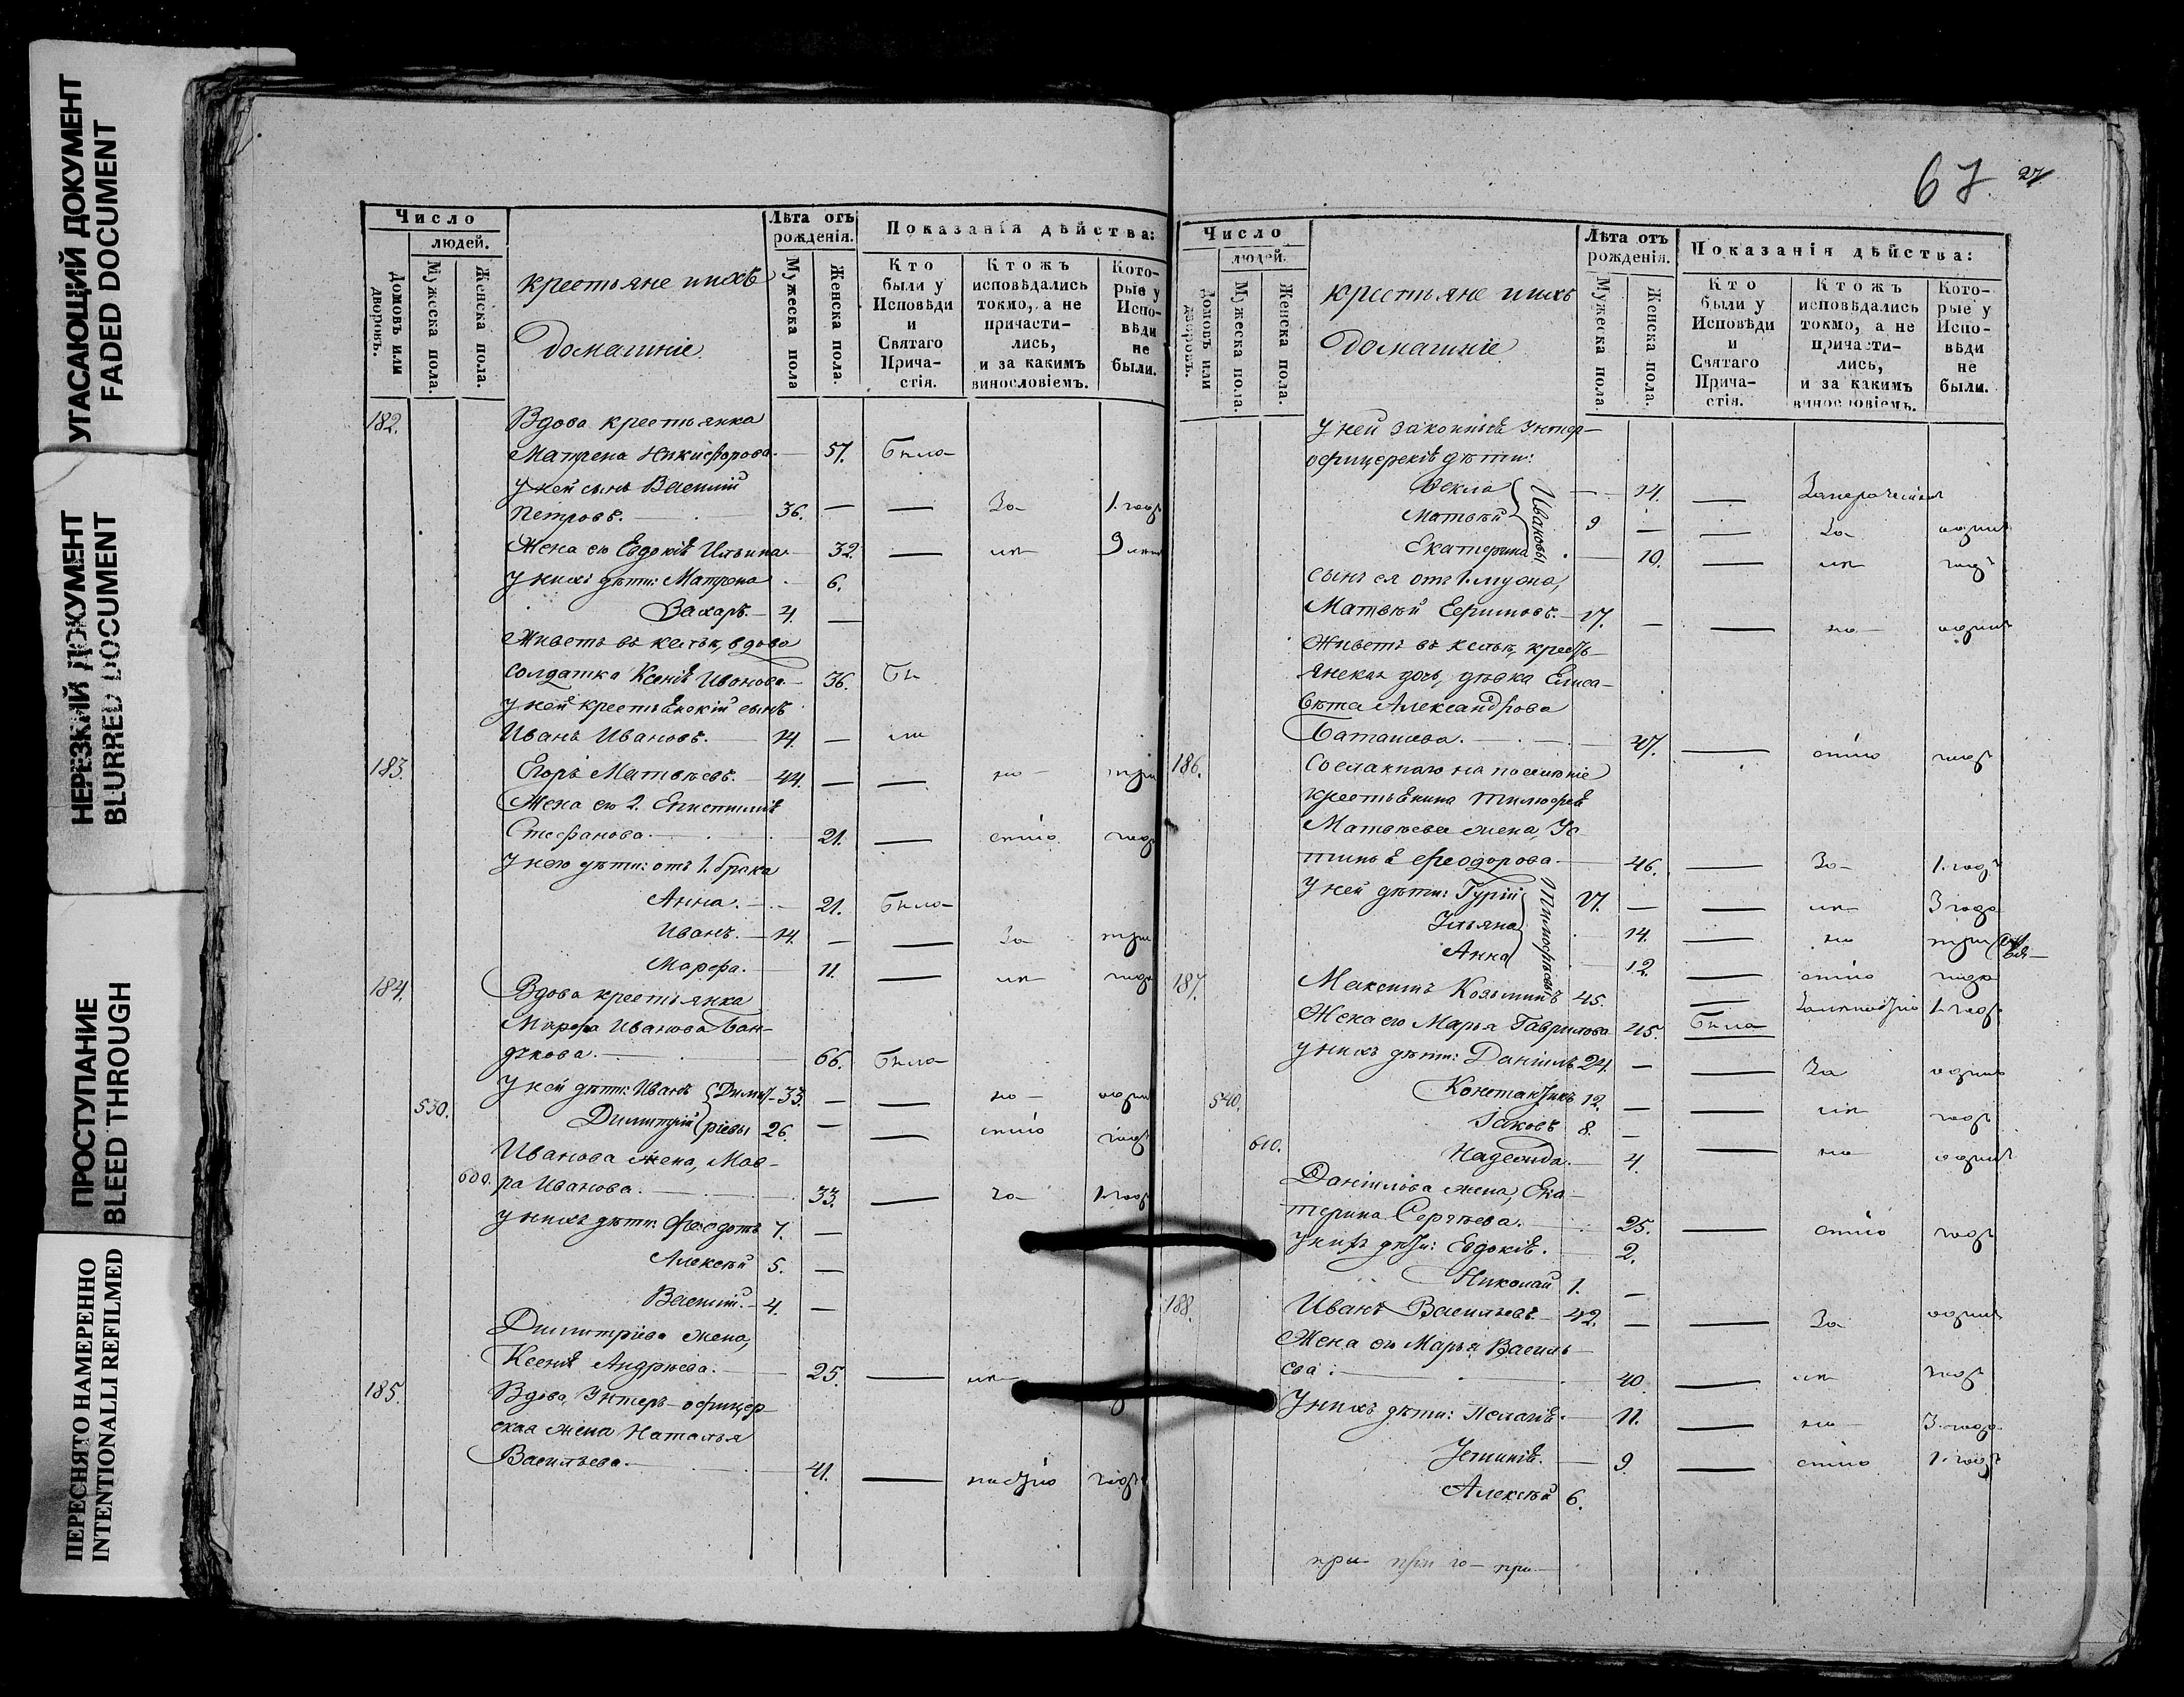 УГАСАЮЩИЙ ДОКУМЕНТ
FADED DOCUMENT
НЕРЕЗКИЙ ДОКУМЕНТ
BLURRED DOCUMENT
ПРОСТУПАНИЕ
BLEED THROUGH
ПЕРЕСНЯТО НАМЕРЕННО
INTENTIONALLI REFILMED
Число
людей.
Домовъ или дворовъ.
Мужеска пола.
Женска пола.
крестьяне и ихъ
домашніе
Лѣта отъ
рожденія.
Мужеска пола
Женска пола.
Показанія дѣйства:
Кто
были у
Исповѣди
и
Святаго
Прича-
стія.
Ктожъ
исповѣдались
токмо, а не
причасти-
лись,
и за какимъ
винословіемъ.
Кото-
рые у
Испо-
вѣди
не
были.
182. Вдова крестьянка
Матрена Никифорова. — 57. Была
У ней сынъ Василий
Петровъ. — 36. — — За 1. годъ
Жена его Евдокія Ильина — 32. —
У нихъ дѣти: Матрена — 6.
Захаръ. — 4. —
Живетъ въ кельи, вдова
солдатка Ксенія Иванова — 36.
У ней крестьянскій сынъ
Иванъ Ивановъ. — 14. —
183. Егоръ Матвѣевъ. — 44. — —
Жена его 2.
Стефанова. — 21. — годъ
У него дѣти: отъ 1. брака
Анна. — 21. Была
Иванъ. — 14. — — За
Марфа. — 11. —
184. Вдова крестьянка
Марфа Иванова
— 66. Была
У ней дѣти: Иванъ Дими- 33. — —
530. Димитрій ріевы 26. — — годъ
Иванова жена, Мав-
600. ра Иванова. — 33. — За 1. годъ
У нихъ дѣти: Феодотъ 7. —
Алексѣй 5. —
Василій. — 4. —
Димитріева жена,
Ксенія Андреева. — 25. —
185. Вдова, Унтеръ-офицер-
ская жена Наталья
Васильева. — 41. — годъ
67. 27
Число
людей.
Домовъ или дворовъ.
Мужеска пола.
Женска пола.
крестьяне и ихъ
домашніе
Лѣта отъ
рожденія.
Мужеска пола.
Женска пола.
Показанія дѣйства:
Кто
были у
Исповѣди
и
Святаго
Прича-
стія.
Ктожъ
исповѣдались
токмо, а не
причасти-
лись,
и за какимъ
винословіемъ.
Кото-
рые у
Испо-
вѣди
не
были.
У ней законныя Унтер-
офицерскія дѣти:
Фекла — 14. —
Матвѣй Ивановы 9 — — За одинъ
Екатерина — 10. — годъ
сынъ ея отъ 1. мужа,
Матвѣй Ефимовъ. — 17. — — одинъ
Живетъ въ кельи, кресть-
янская дочь, дѣвка Елиса-
вета Александрова
Баташева. — 47. — годъ
186. Сосланнаго на поселеніе
крестьянина Тимофея
Матвѣева жена, Ус-
тинья Феодорова. — 46. — За 1. годъ
У ней дѣти: Гурій 17. — — 3 года
Ульяна Тимофѣевы 14. —
Анна 12. — года
187. Максимъ Козьминъ 45. — 1. годъ
Жена его Марья Гаврилова 45. Была
У нихъ дѣти: Даніилъ 24. — — За одинъ
540. Константинъ 12. — — годъ
Іаковъ 8. —
610. Надежда. — 4. — одинъ
Даніилова жена, Ека-
терина Сергѣева. — 25. — годъ
У нихъ дѣти: Евдокія. — 2.
Николай 1. —
188. Иванъ Васильевъ. — 42. — — За одинъ
Жена его Марья Василь-
ева. — 40. — годъ
У нихъ дѣти: Пелагія. — 11. — 3. года
Устинія. — 9. — 1. годъ
Алексѣй 6.